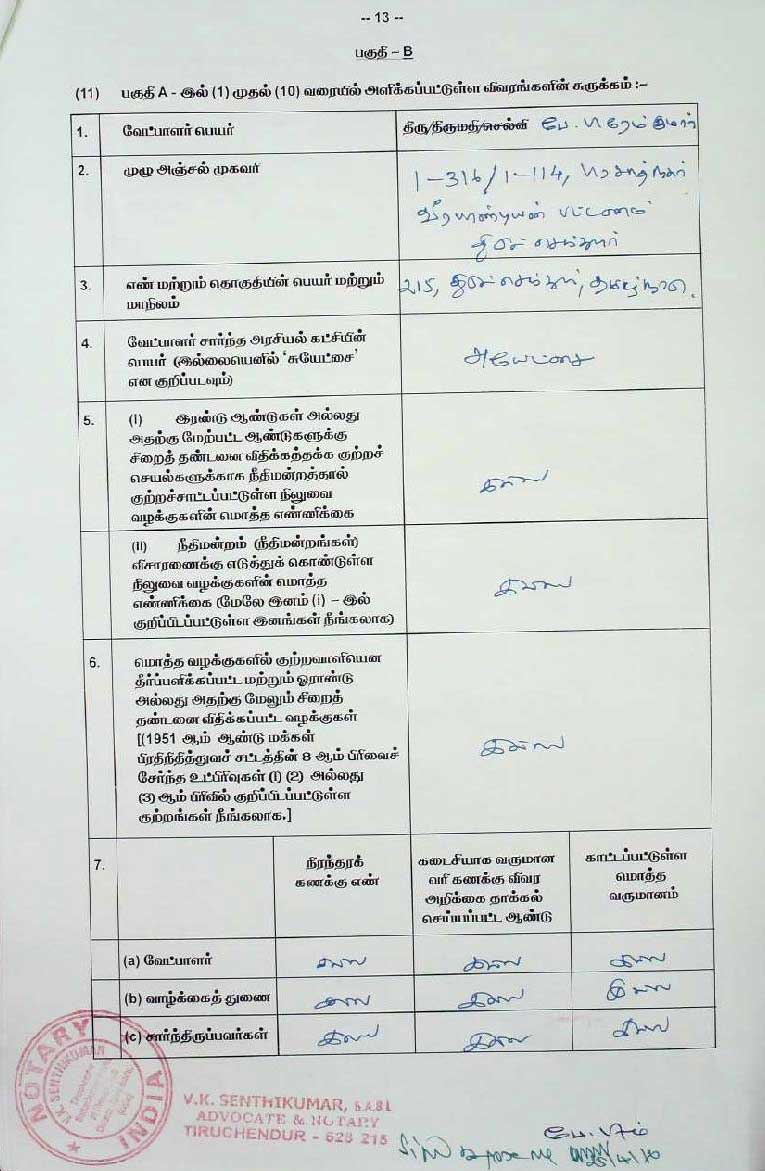 -- 13 --
பகுதி – B
(11) பகுதி A - இல் (1) முதல் (10) வரையில் அளிக்கப்பட்டுள்ள விவரங்களின் சுருக்கம் :–
1. வேட்பாளர் பெயர் திரு/திருமதி/செல்வி பே. பிரேம்குமார்
2. முழு அஞ்சல் முகவர் 1-316/1-114,
வீரபாண்டியன் பட்டணம்
திருச்செந்தூர்
3. எண் மற்றும் தொகுதியின் பெயர் மற்றும்
மாநிலம்
215, திருச்செந்தூர், தமிழ்நாடு.
4. வேட்பாளர் சார்ந்த அரசியல் கட்சியின்
பெயர் (இல்லையெனில் ‘சுயேட்சை’
என குறிப்படவும்)
சுயேட்சை
5. (I) இரண்டு ஆண்டுகள் அல்லது
அதற்கு மேற்பட்ட ஆண்டுகளுக்கு
சிறைத் தண்டனை விதிக்கத்தக்க குற்றச்
செயல்களுக்காக நீதிமன்றத்தால்
குற்றச்சாட்டப்பட்டுள்ள நிலுவை
வழக்குகளின் மொத்த எண்ணிக்கை
இல்லை
(II) நீதிமன்றம் (நீதிமன்றங்கள்)
விசாரணைக்கு எடுத்துக் கொண்டுள்ள
நிலுவை வழக்குகளின் மொத்த
எண்ணிக்கை (மேலே இனம் (i) – இல்
குறிப்பிடப்பட்டுள்ள இனங்கள் நீங்கலாக)
இல்லை
6. மொத்த வழக்குகளில் குற்றவாளியென
தீர்ப்பளிக்கப்பட்ட மற்றும் ஓராண்டு
அல்லது அதற்கு மேலும் சிறைத்
தண்டனை விதிக்கப்பட்ட வழக்குகள்
[(1951 ஆம் ஆண்டு மக்கள்
பிரதிநிதித்துவச் சட்டத்தின் 8 ஆம் பிரிவைச்
சேர்ந்த உட்பிரிவுகள் (I) (2) அல்லது
(3) ஆம் பிரிவில் குறிப்பிடப்பட்டுள்ள
குற்றங்கள் நீங்கலாக.]
இல்லை
7. நிரந்தரக்
கணக்கு எண்
கடைசியாக வருமான
வரி கணக்கு விவர
அறிக்கை தாக்கல்
செய்யப்பட்ட ஆண்டு
காட்டப்பட்டுள்ள
மொத்த
வருமானம்
(a) வேட்பாளர் இல்லை இல்லை இல்லை
(b) வாழ்க்கைத் துணை இல்லை இல்லை இல்லை
(c) சார்ந்திருப்பவர்கள் இல்லை இல்லை இல்லை
NOTARY
V.K. SENTHIKUMAR
INDIA
V.K. SENTHIKUMAR, B.A.B.L
ADVOCATE & NOTARY
TIRUCHENDUR - 628 215